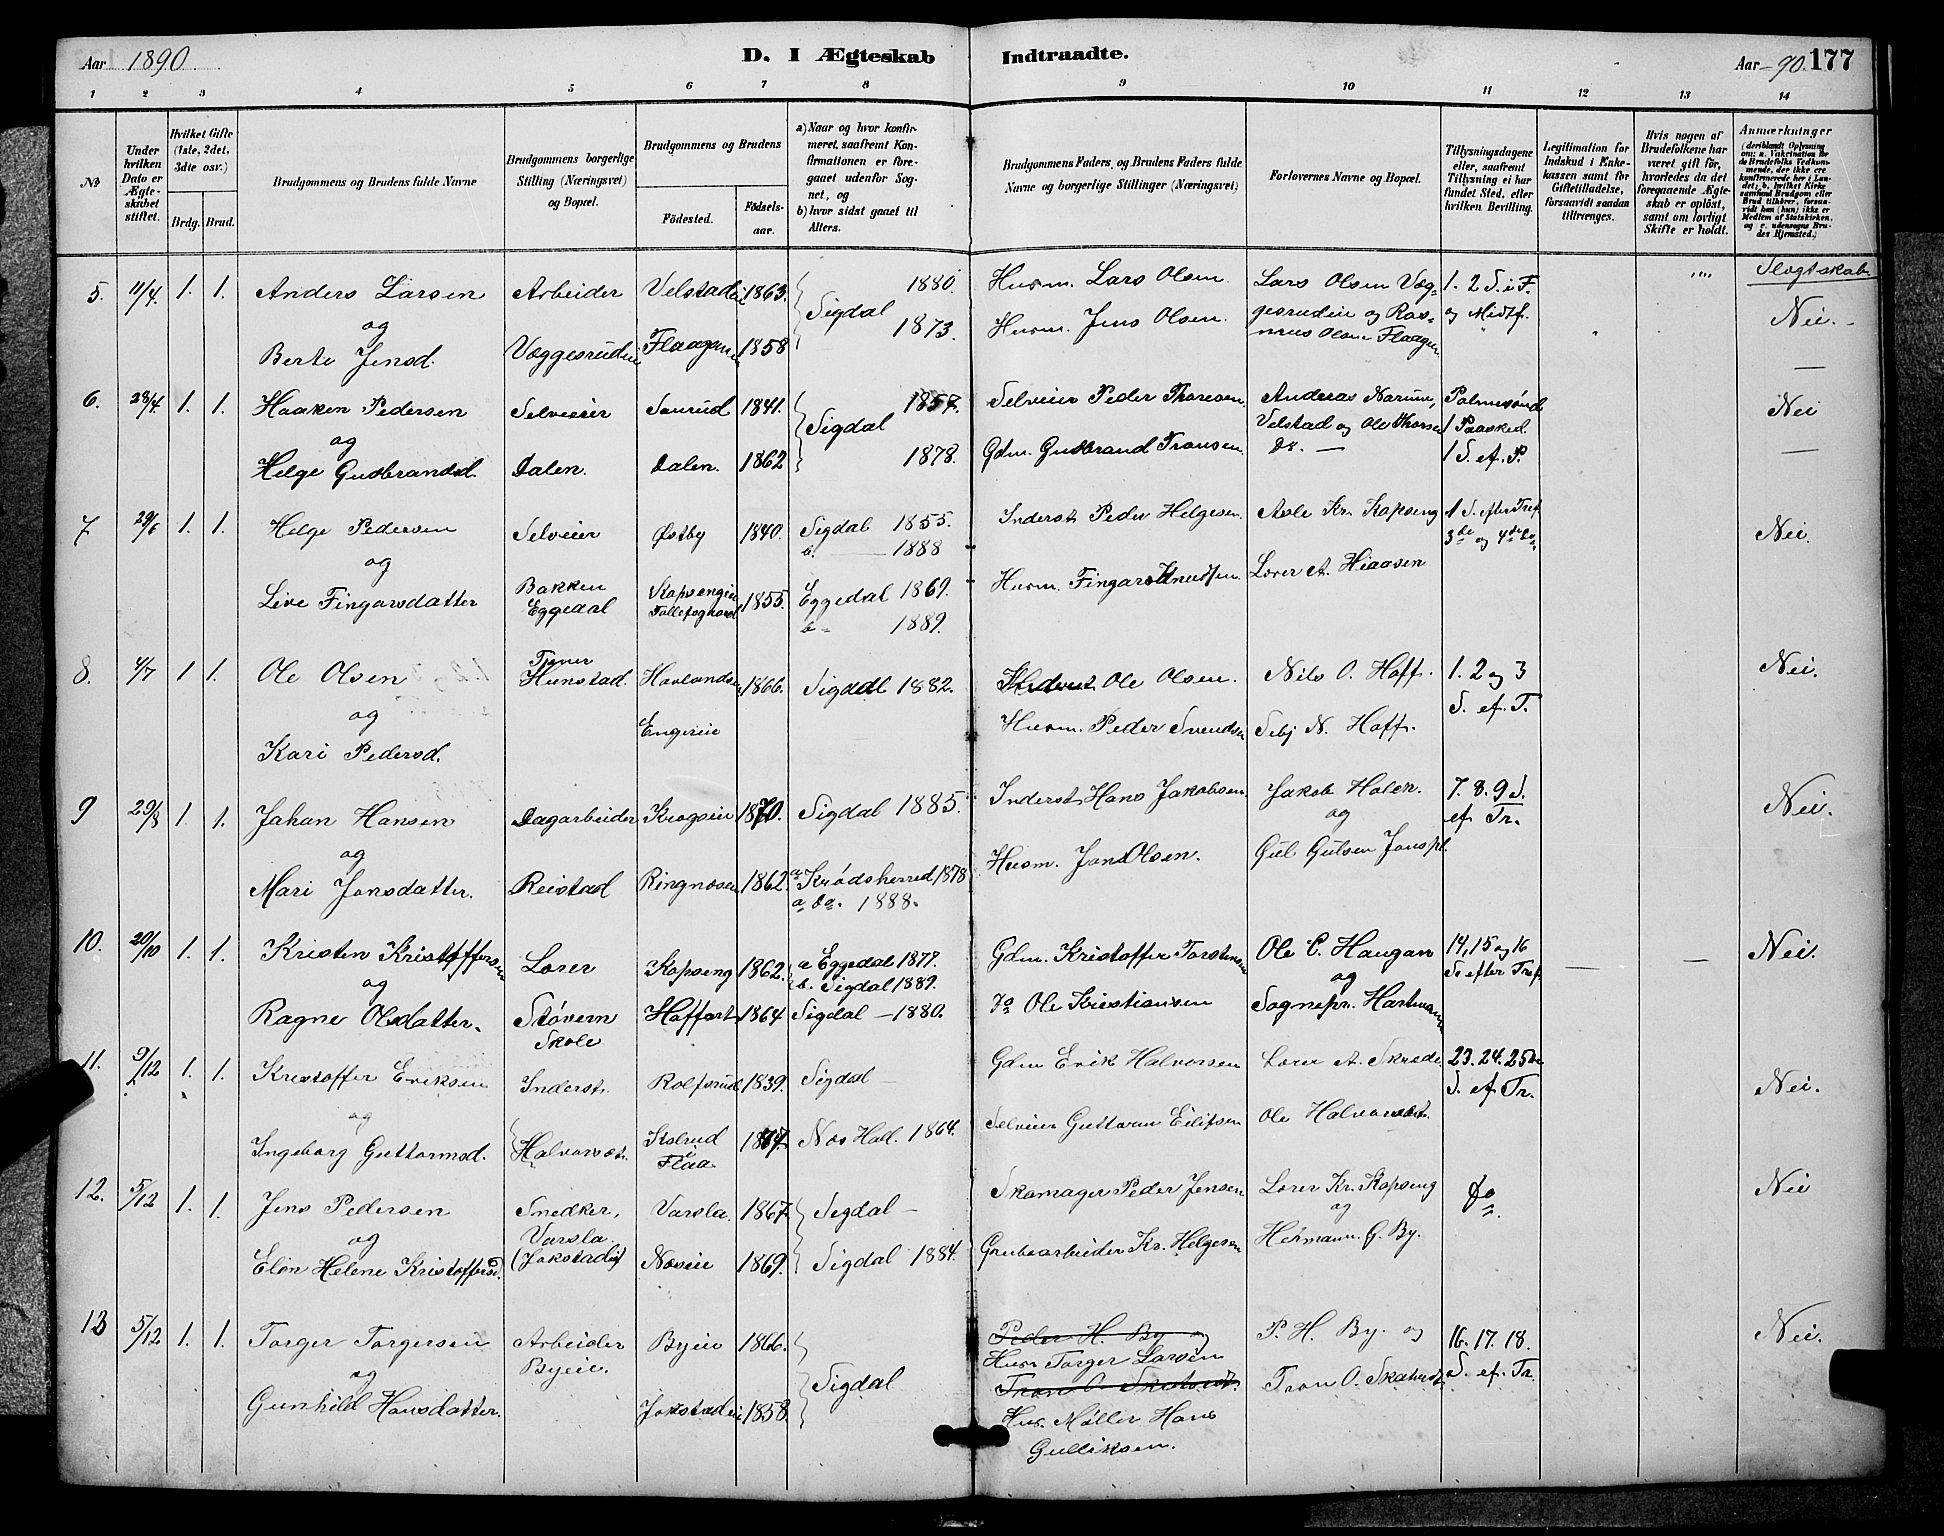 Aar 1890
D. I Ægteskab Indtraadte.
Aar -90. 177
1 2 3 4 5 6 7 8 9 10 11 12 13 14
№
Under hvilken Dato er Ægteskabet stiftet.
Hvilket Gifte (1ste, 2det, 3dte osv.)
Brdg. Brud.
Brudgommens og Brudens fulde Navne
Brudgommens borgerlige Stilling (Næringsvei) og Bopæl.
Brudgommens og Brudens
Fødested.
Fødselsaar.
a) Naar og hvor konfirmeret, saafremt Konfirmationen er foregaaet udenfor Sognet, og
b) hvor sidst gaaet til Alters.
Brudgommens Faders, og Brudens Faders fulde Navne og borgerlige Stillinger (Næringsvei)
Forlovernes Navne og Bopæl.
Tillysningsdagene eller, saafremt Tillysning ei har fundet Sted, efter hvilken Bevilling.
Legitimation for Indskud i Enkekassen samt for Giftetilladelse, forsaavidt saadan tiltrænges.
Hvis nogen af Brudefolkene har været gift før, hvorledes da det foregaaende Ægteskab er opløst, samt om lovligt Skifte er holdt.
Anmærkninger (deriblandt Oplysning om: a. Vakcination for de Brudefolks Vedkommende, der ikke ere konfirmerede her i Landet; b. hvilket Kirkesamfund Brudgom eller Brud tilhører, forsaavidt han (hun) ikke er Medlem af Statskirken, og c. udensogns Brudes Hjemsted.)
Slegtskab
5. 11/4 1. 1. Anders Larsen Arbeider Velstadei 1863. Sigdal 1880. Husm. Lars Olsen Lars Olsen Væg- 1. 2 S. i F.
og 1873. Husm. Jens Olsen. gesrudeie og Ras- og Midtf. Nei.
Berte Jensd. Væggesrudei Flaagan 1858 mus Olsen Flaagan
6. 23/4. 1. 1. Haaken Pedersen Selveier Sanrud 1841. Sigdal 1857. Selveier Peder Thoresen. Andreas Narum, Palmesønd Nei
og Velstad og Ole Thorsen 1 Paasked.
Helge Gudbrandsd. Dalen. Dalen. 1862 1878. Gdm. Gudbrand Tronsen. Do. — 1 S. ef. P.
7. 29/6 1. 1. Helge Pedersen Selveier Østby 1840. Sigdal 1855. Inderst Peder Helgesen. Asle Kr. Kopseng 1 S. efter Tref. Nei.
og b. — 1888 3de og 4de Do.
Live Fingarsdatter Bakken Eggedal Kopsengeie 1855. Eggedal 1869. Husm. Fingar Knudsen. Lærer A. Hiaasen
b - 1889.
8. 4/7 1 1. Ole Olsen Tjener Hunstad. Havlandsei 1866. Sigdal 1882. Inderst Ole Olsen. Nils O. Hoff. 1. 2 og 3 Nei.
og Engereie S. ef. T.
Kari Pedersd. Husm. Peder Svendsen Sebj N. Hoff.
9 29/8 1. 1. Johan Hansen Dagarbeider Krogseie 1870. Sigdal 1885. Inderst Hans Jakobsen. Jakob Holen. 7. 8. 9 S. Nei.
og og ef. Tr.
Mari Jonsdatter. Reistad Ringnæsei 1862. a. Krødsherred 1878 Husm. Jon Olsen. Gul Gulsen Jonspl.
a. do. 1888.
10. 20/10 1. 1. Kristen Kristoffersen Lærer Kopseng 1862. a. Eggedal 1877. Gdm. Kristoffer Torstensen Ole C. Haugan 14, 15 og 16 Nei.
og b. Sigdal 1889. og S. efter Tref.
Ragne Olsdatter. Støvern Skole Hoffart 1864 Sigdal — 1880. Do Ole Kristiansen Sognepr. Hartmann
11. 9/12 1. 1. Kristoffer Eriksen Inderst. Rolfsrud 1839. Sigdal — Gdm Erik Halvorsen Lærer A. Skrede 23. 24. 25de Nei.
og S. ef. Tr.
Ingeborg Guttormsd. Halvorsæt. Kolrud i Flaa Næs Hall. 1864. Selveier Guttorm Eilifsen Ole Halvorsæt.
12. 5/12 1. 1. Jens Pedersen Snedker, Varsla. 1867. Sigdal — Skomager Peder Jensen Lærer Kr. Kopseng do Nei
og Varsla. og
Elen Helene Kristoffersd. (Jokstadei) Næseie 1869. Sigdal 1884. Grubearbeider Kr. Helgesen Hermann G. By.
13 5/12 1. 1. Torger Torgersen Arbeider Byeie 1866. Sigdal Peder H. By og P. H. By og 16. 17. 18. Nei.
og Byeie. Hus. Torger Larsen S. ef. Tr.
Gunhild Hansdatter. Jokstadei 1858. Tron O. Skatvedt. Tron O. Skatvedt
Hus. Møller Hans
Gulliksen.